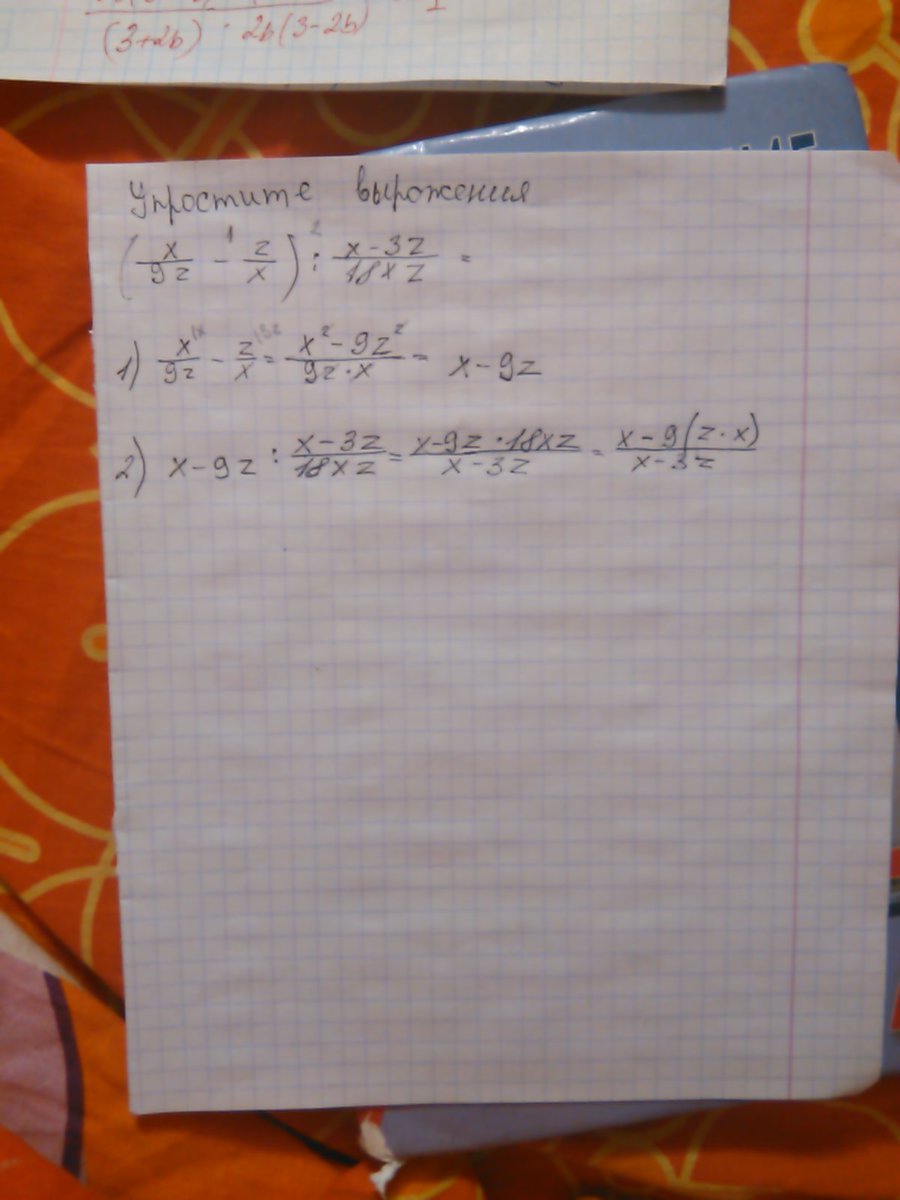 (3+2b) · 2b(3-2b)
Упростите вырожения
(x/9z - z/x) : (x-3z)/(18xz) =
1) x/9z - z/x = (x² - 9z²)/(9z·x) = x-9z
2) x-9z : (x-3z)/(18xz) = (x-9z·18xz)/(x-3z) = (x-9(z·x))/(x-3z)